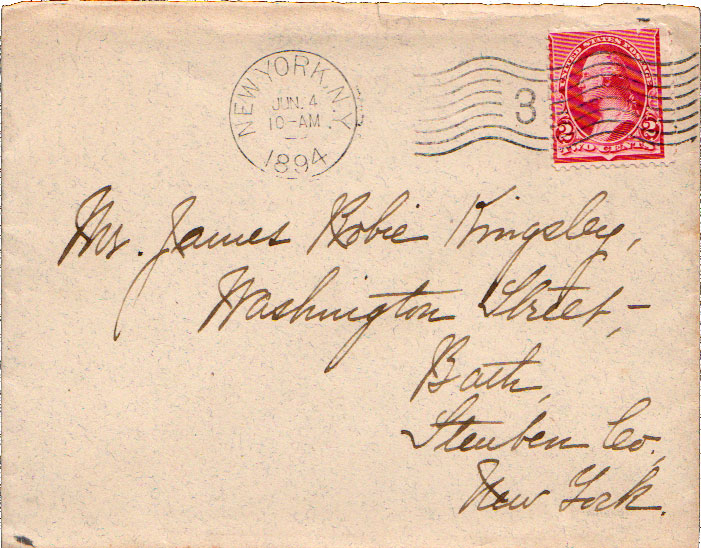 NEW YORK, N.Y.
JUN. 4
10-AM
1894
3
UNITED STATES POSTAGE
2 2
TWO CENTS
Mr. James Robie Kingsley,
Washington Street,
Bath,
Steuben Co.,
New York.